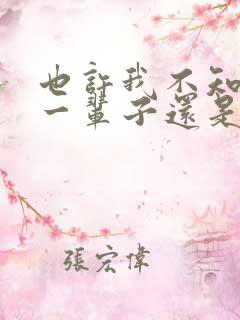 也許我不知
一輩子還是
張宏偉